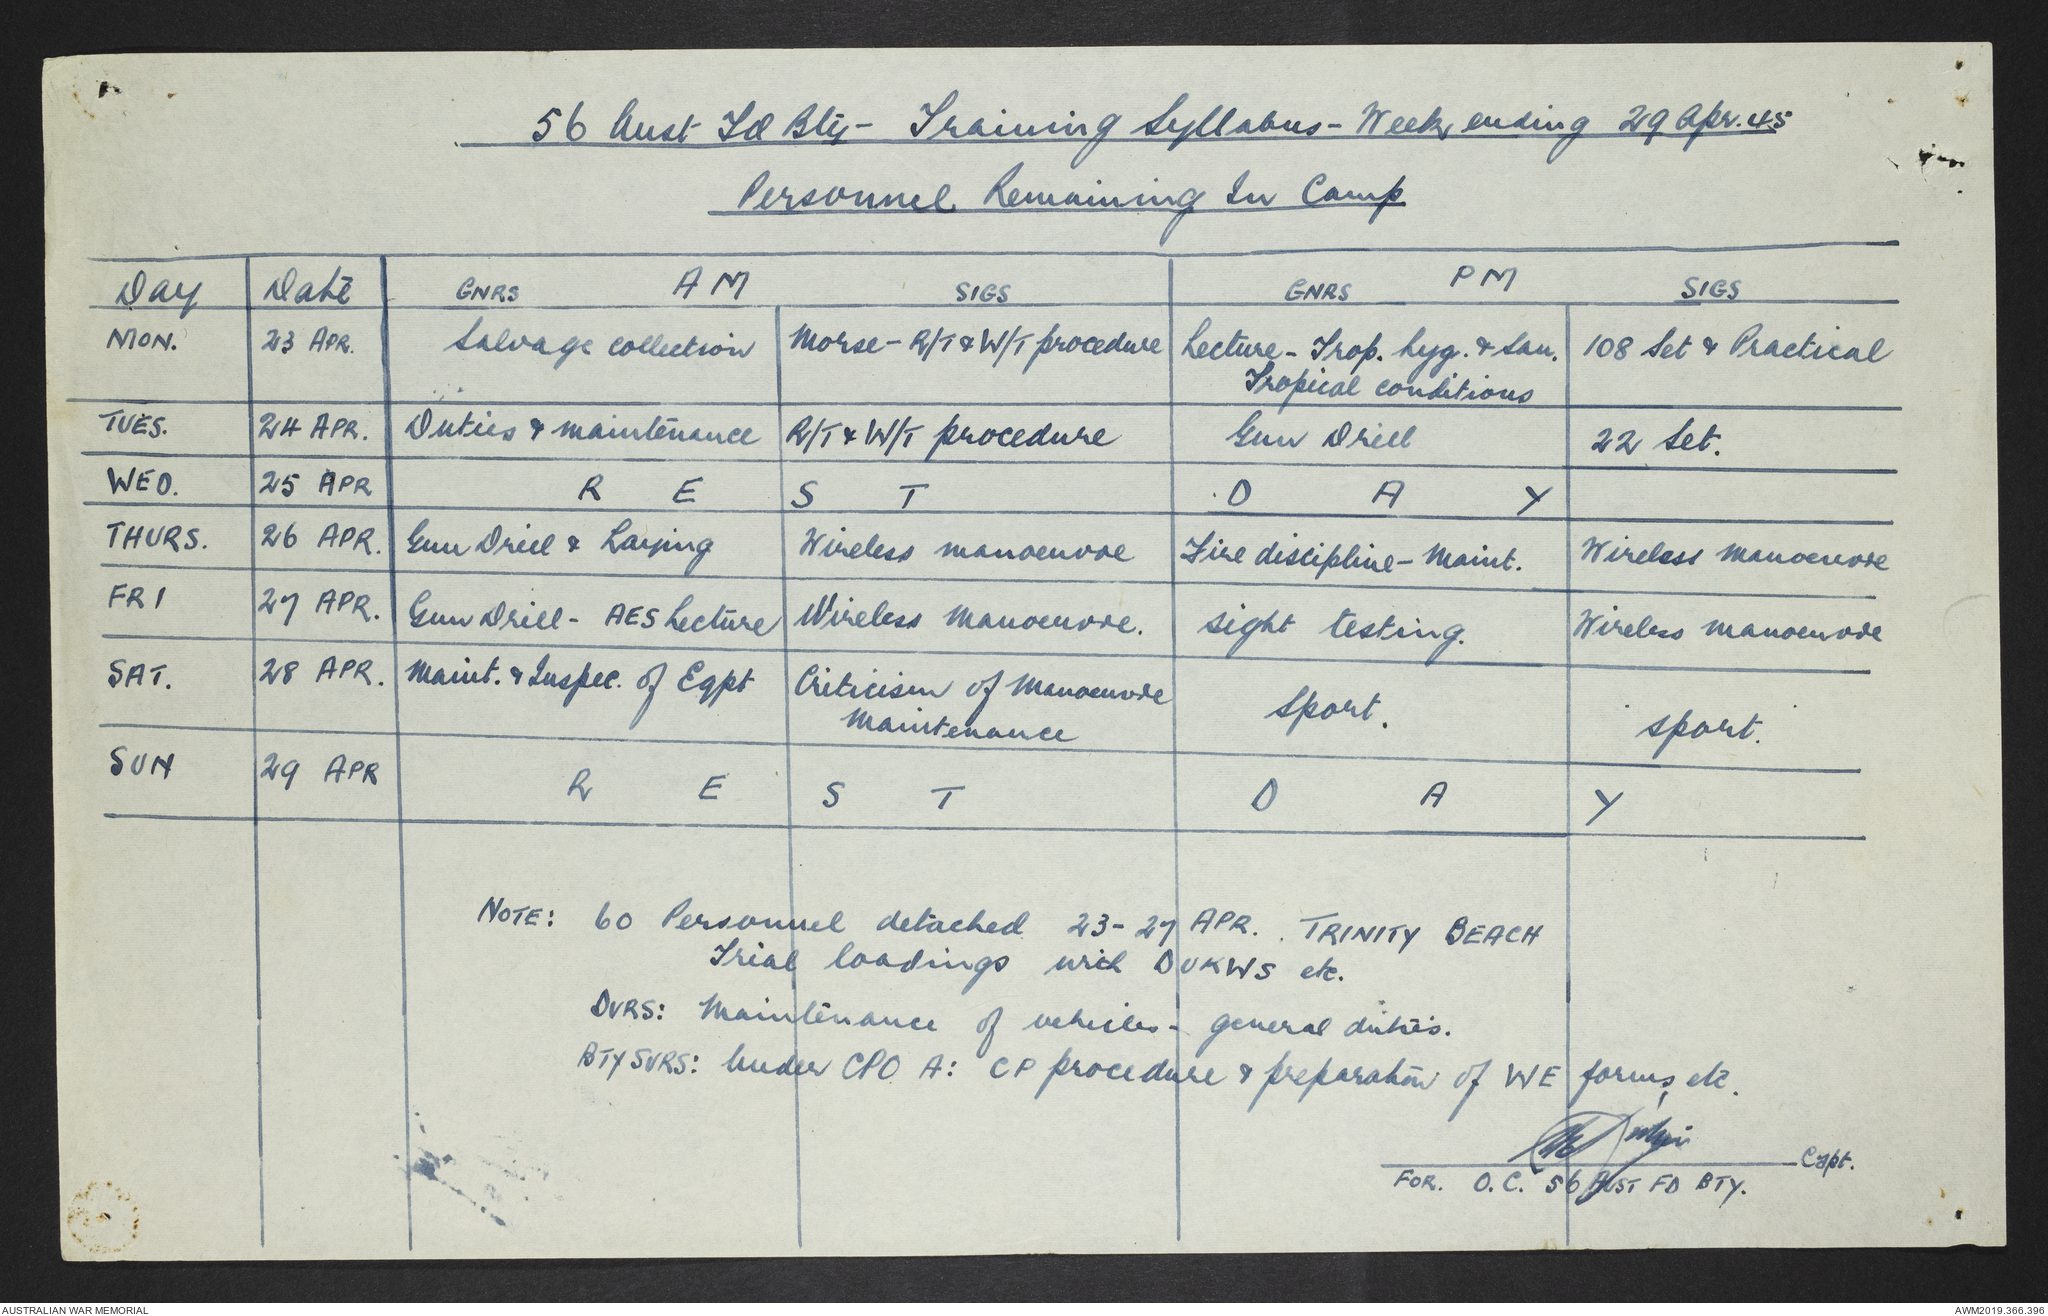 56 Aust Fd Bty - Training Syllabus - Week ending 29 Apr. 45
Personnel Remaining In Camp
Day Date GNRS AM SIGS GNRS PM SIGS
MON. 23 APR. Salvage collection Morse - R/T & W/T procedure Lecture - Trop. hyg. & San. 108 Set & Practical
Tropical conditions
TUES. 24 APR. Duties & maintenance R/T & W/T procedure Gun Drill 22 Set.
WED. 25 APR R E S T D A Y
THURS. 26 APR. Gun Drill & Laying Wireless manoeuvre Fire discipline - Maint. Wireless manoeuvre
FRI 27 APR. Gun Drill - AES Lecture Wireless manoeuvre. Sight testing. Wireless manoeuvre
SAT. 28 APR. Maint. & Inspec. of Eqpt Criticism of manoeuvre Sport. Sport.
Maintenance
SUN 29 APR R E S T D A Y
NOTE: 60 Personnel detached 23-27 APR. TRINITY BEACH
Trial loadings with DUKWS etc.
DVRS: Maintenance of vehicles - general duties.
BTY SVRS: Under CPO A: CP procedure & preparation of WE forms, etc.
Capt.
FOR. O.C. 56 AUST FD BTY.
AUSTRALIAN WAR MEMORIAL
AWM2019.366.396